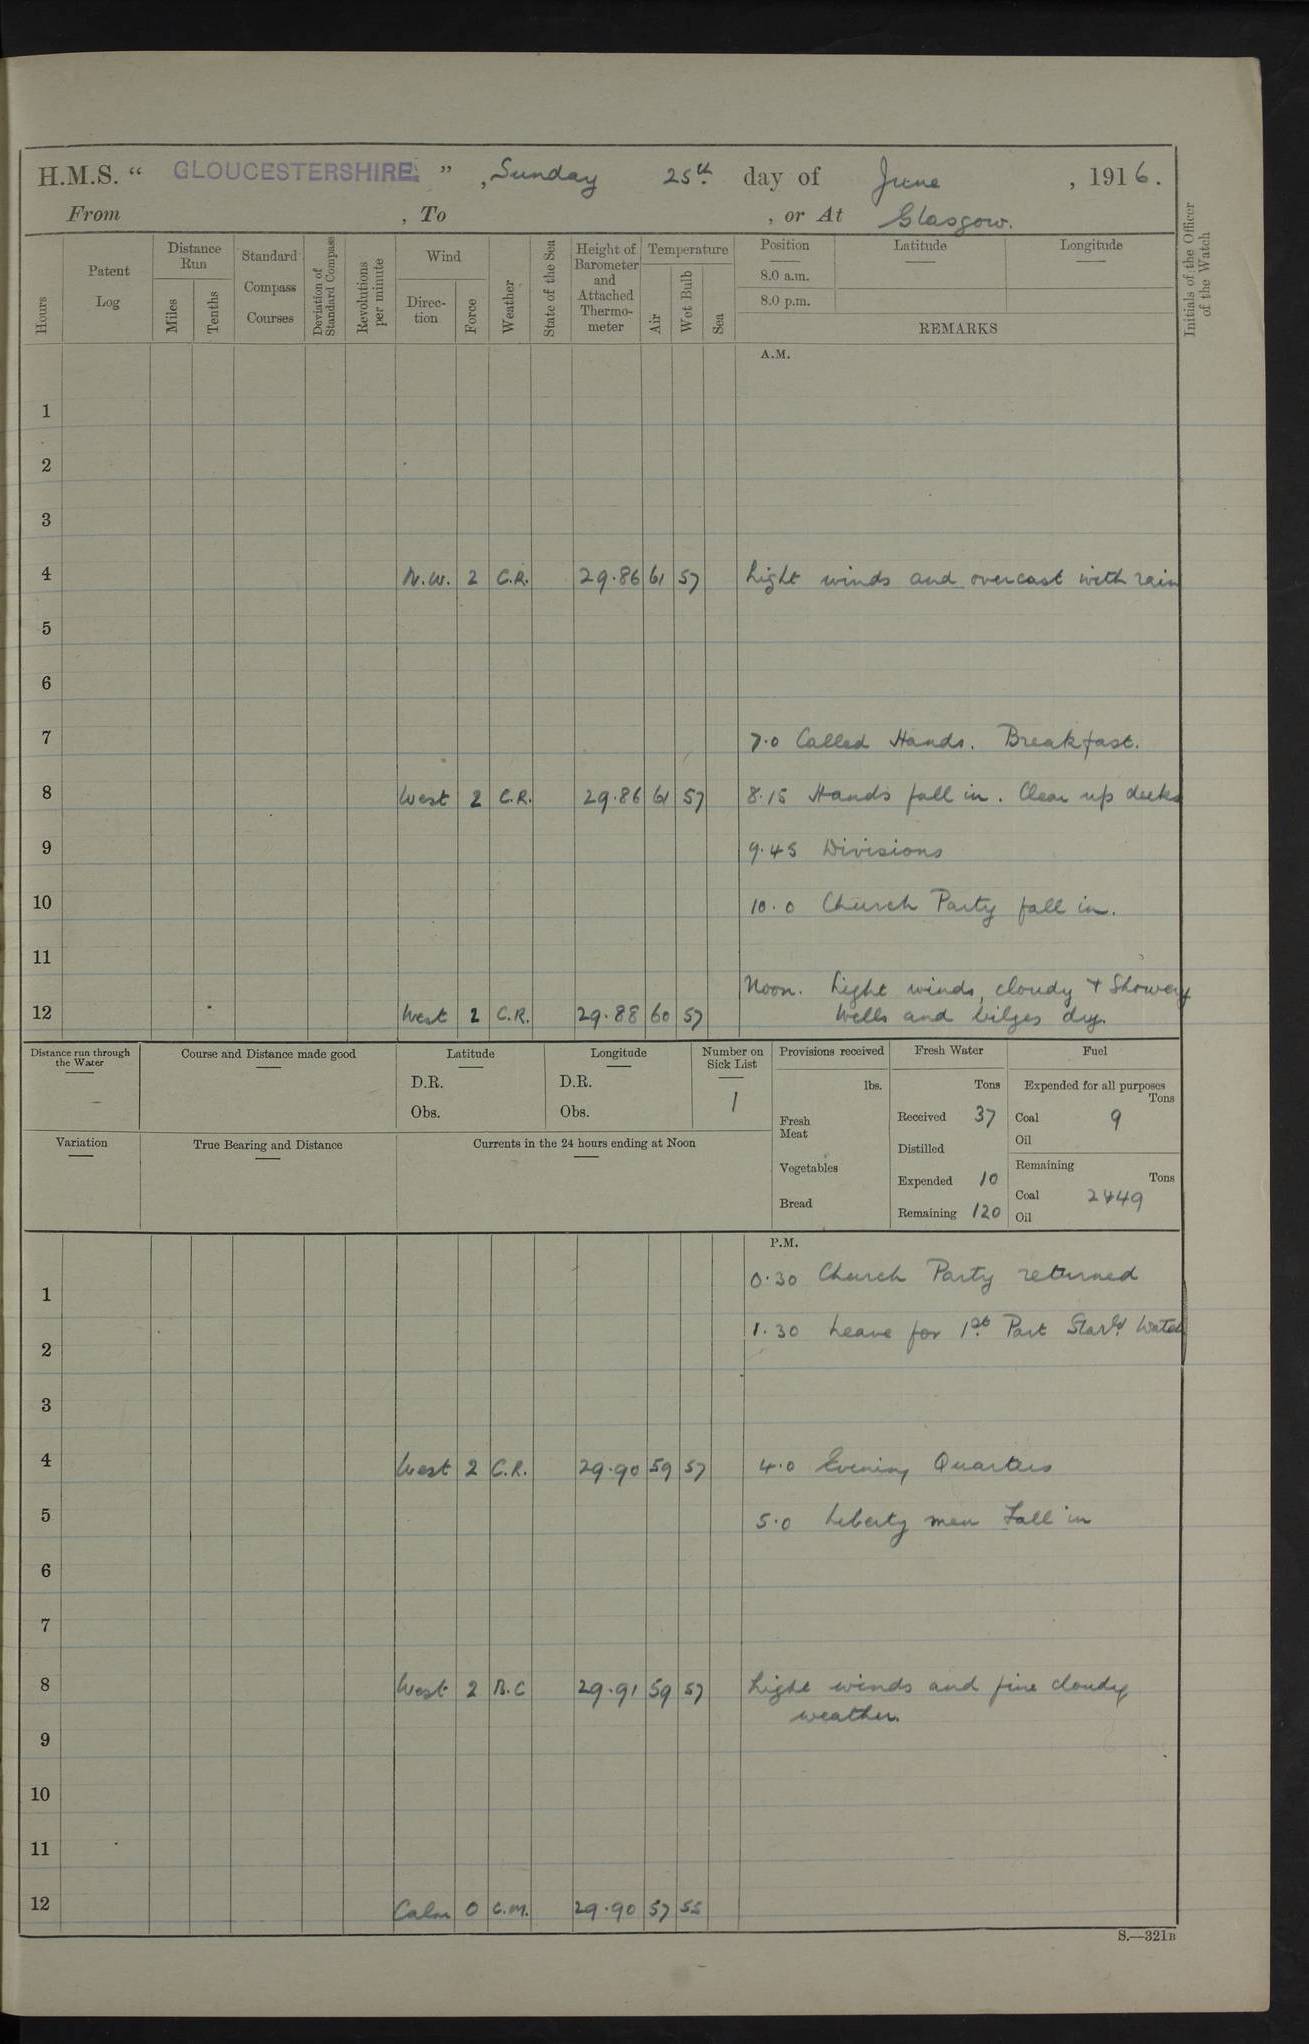 H.M.S. “ GLOUCESTERSHIRE. ” , Sunday 25th day of June , 1916.
From , To , or At Glasgow.
Hours
Patent Log
Distance Run
Miles
Tenths
Standard Compass Courses
Deviation of Standard Compass
Revolutions per minute
Wind
Direc-tion
Force
Weather
State of the Sea
Height of Barometer and Attached Thermo-meter
Temperature
Air
Wet Bulb
Sea
Position
Latitude
Longitude
8.0 a.m.
8.0 p.m.
REMARKS
Initials of the Officer of the Watch
A.M.
1
2
3
4 N.W. 2 C.R. 29.86 61 57 Light winds and overcast with rain
5
6
7 7.0 Called Hands. Breakfast.
8 West 2 C.R. 29.86 61 57 8.15 Hands fall in. Clear up decks
9 9.45 Divisions
10 10.0 Church Party fall in.
11
Noon. Light winds, cloudy + Showery
12 West 2 C.R. 29.88 60 57 Wells and bilges dry.
Distance run through the Water
Course and Distance made good
Latitude
D.R.
Obs.
Longitude
D.R.
Obs.
Number on Sick List
1
Provisions received
lbs.
Fresh Meat
Vegetables
Bread
Fresh Water
Tons
Received 37
Distilled
Expended 10
Remaining 120
Fuel
Expended for all purposes
Tons
Coal 9
Oil
Remaining
Tons
Coal 2449
Oil
Variation
True Bearing and Distance
Currents in the 24 hours ending at Noon
P.M.
0.30 Church Party returned
1
1.30 Leave for 1st Part Starbd Watch
2
3
4 West 2 C.R. 29.90 59 57 4.0 Evening Quarters
5 5.0 Liberty men Fall in
6
7
8 West 2 B.C 29.91 59 57 Light winds and fine cloudy
weather.
9
10
11
12 Calm 0 C.M. 29.90 57 55
S.—321B